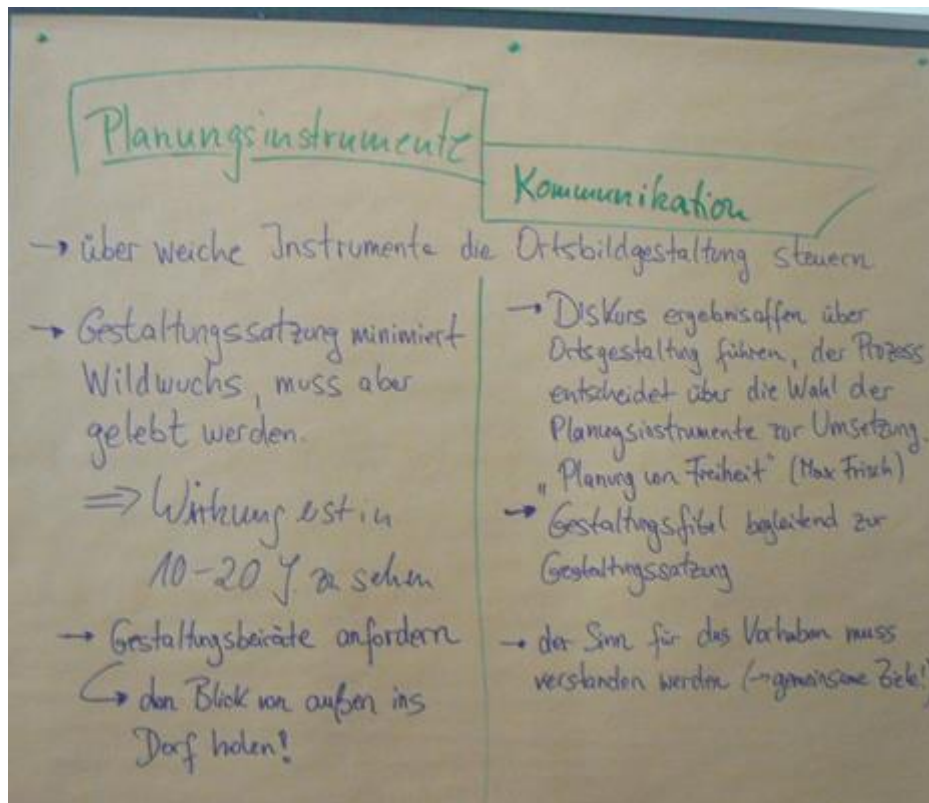 Planungsinstrumente
Kommunikation
→ über weiche Instrumente die Ortsbildgestaltung steuern
→ Gestaltungssatzung minimiert
Wildwuchs, muss aber
gelebt werden.
⇒ Wirkung erst in
10-20 J. zu sehen
→ Gestaltungsbeiräte anfordern
↳ den Blick von außen ins
Dorf holen!
→ Diskurs ergebnisoffen über
Ortsgestaltung führen, der Prozess
entscheidet über die Wahl der
Planungsinstrumente zur Umsetzung.
"Planung von Freiheit" (Max Frisch)
→ Gestaltungsfibel begleitend zur
Gestaltungssatzung
→ der Sinn für das Vorhaben muss
verstanden werden (→ gemeinsame Ziele!)